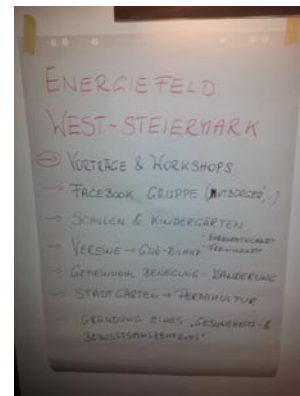 ENERGIEFELD
WEST-STEIERMARK
→ VORTRÄGE & WORKSHOPS
→ FACEBOOK GRUPPE (MUTBÜRGER
→ SCHULEN & KINDERGÄRTEN
- EHRENAMTLICHKEIT
→ VEREINE → GWÖ-BILANZ - FREIWILLIGKEIT
→ GEMEINWOHL BEWEGUNG - WANDERUNG
→ STADTGÄRTEN → PERMAKULTUR
GRÜNDUNG EINES „GESUNDHEITS- &
BEWUSSTSEINSZENTRUMS"